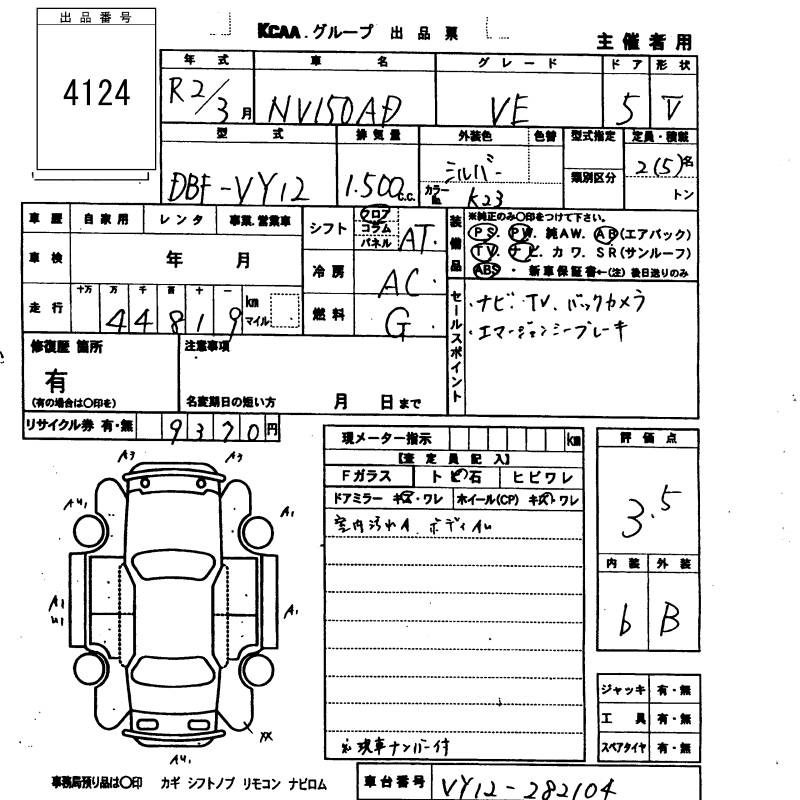 出品番号
4124
KCAA.グループ 出品票
主催者用
年式 車名 グレード ドア 形状
R2/3月 NV150AD VE 5 V
型式 排気量 外装色 色替 型式指定 定員・積載
DBF-VY12 1.500c.c. シルバー 類別区分 2(5)名
カラーNo. K23 トン
車歴 自家用 レンタ 事業.営業車
シフト フロア コラム パネル AT.
装備品 ※純正のみ〇印をつけて下さい。
PS. PW. 純AW. AB(エアバック)
TV. ナビ. カワ. SR(サンルーフ)
ABS・新車保証書←(注)後日送りのみ
車検 年 月
冷房 AC.
走行 十万 万 千 百 十 一
44819 km マイル
燃料 G.
セールスポイント
・ナビ. TV. バックカメラ
・エマージェンシーブレーキ
修復歴 箇所
有
(有の場合は〇印を)
注意事項
名変期日の短い方 月 日まで
リサイクル券 有・無 9370円
現メーター指示 km
【査定員記入】
Fガラス トビ石 ヒビワレ
ドアミラー キズ・ワレ ホイール(CP) キズ・ワレ
室内汚れA. ボディAU
※現車ナンバー付
評価点
3.5
内装 外装
b B
ジャッキ 有・無
工具 有・無
スペアタイヤ 有・無
A3 A3
AU1 A1
A1 A1
U1
XX
AU1
事務局預り品は〇印 カギ シフトノブ リモコン ナビロム
車台番号 VY12-282104